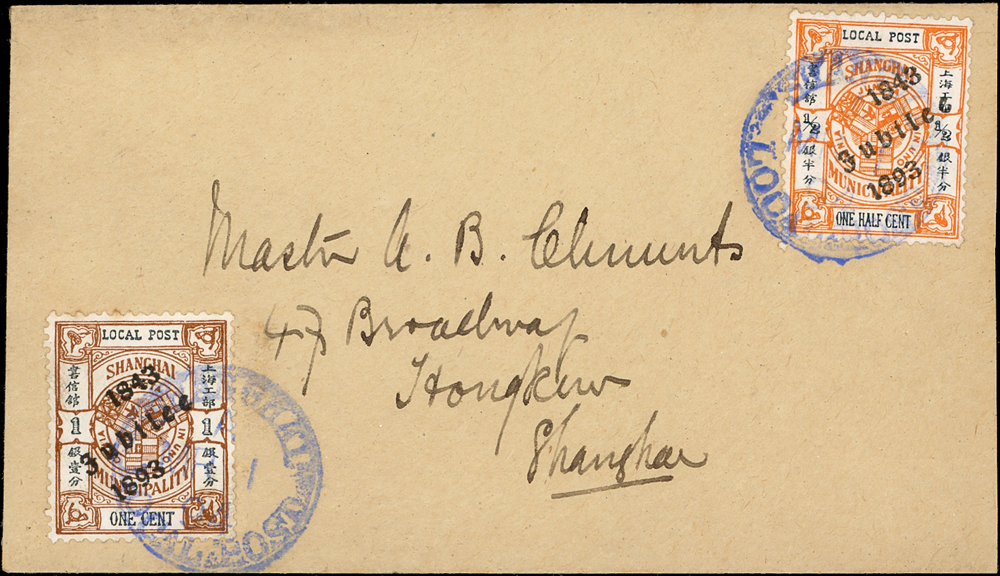 LOCAL POST
SHANGHAI
1843
Jubilee
1893
MUNICIPALITY
ONE HALF CENT
書信館
上海工部
1/2
1/2
銀半分
銀半分
IN UNO
Master A. B. Clements
47 Broadway
Hongkew
Shanghai
LOCAL POST
SHANGHAI
1843
Jubilee
1893
MUNICIPALITY
ONE CENT
書信館
上海工部
1
1
銀壹分
銀壹分
IN UNO
LOCAL POST